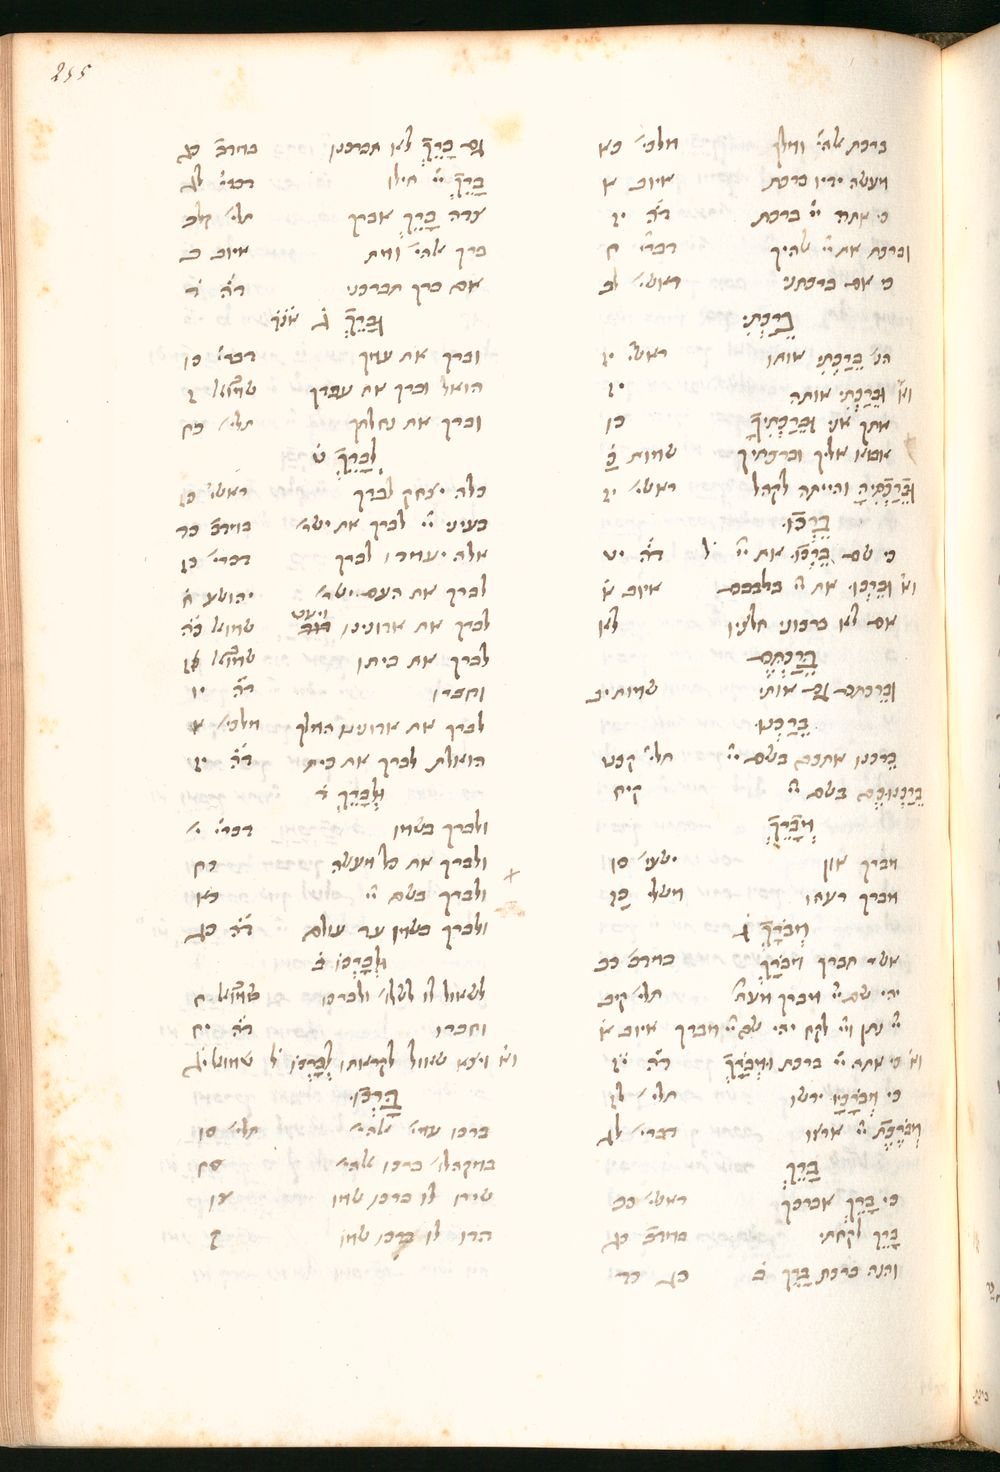 255
ברכת אלהי׳ ומלך מלכי׳ כא
מעשה ידיו ברכת איוב א
כי אתה יי׳ ברכת ד״ה יז
וברכת את יי׳ אלהיך דברי׳ ח
כי אם ברכתני ראשי׳ לב
בֵּרַכְתִּי׃
הנ׳ בֵּרַכְתִּי אותו ראשי׳ יז
וא״ו וּבֵרַכְתִּי אותה יז
אתך אני וּבֵרַכְתִּיךָ כו
אבוא אליך וברכתיך שמות כ
וּבֵרַכְתִּיהָ והייתה לקהל ראשי׳ יז
בֵּרְכוּ׃
כי שם בֵּרְכוּ את יי׳ ל׳ ד״ה יט
וא״ו וּבֵרְכוּ את יי׳ בלבבם איוב א
אם לא ברכוני חלציו לא
בֵּרַכְתֶּם
וּבֵרַכְתֶּם גם אותי שמות יב
בֵּרַכְנוּ
בֵּרַכְנוּ אתכם בשם יי׳ תלי׳ קכט
בֵּרַכְנוּכֶם בשם יי׳ קיח
מְבָרֵךְ
מברך און ישעי׳ סו
מברך רעהו משלי כז
מְבֹרָךְ ג׳
אשר תברך מְבֹרָךְ במדב׳ כב
יהי שם יי׳ מברך מעת׳ תלי׳ קיג
יי׳ נתן ויי׳ לקח יהי שם יי׳ מברך איוב א
וא״ו כי אתה יי׳ ברכת וּמְבֹרָךְ ד״ה יז
כי מְבֹרָכָיו ירשו תלי׳ לז
מְבֹרֶכֶת יי׳ ארצו דברי׳ לג
בָּרֵךְ
כי בָרֵךְ אברכך ראשי׳ כב
בָרֵךְ לקחתי במדב׳ כג
והנה ברכת בָרֵךְ ב׳ כג כד
גם בָּרֵךְ לא תברכנו במדב׳ כג
בָּרֵךְ יי׳ חילו דברי׳ לג
צדה בָּרֵךְ אברך תלי׳ קלב
ברך אלהי׳ ומת איוב ב
אם ברך תברכני ד״ה ד
וּבָרֵךְ ג׳
וברך את עמך דברי׳ כו
הואל וברך את עבדך שמואל ז
וברך את נחלתך תלי׳ כח
לְבָרֵךְ ט׳
כלה יצחק לברך ראשי׳ כז
בעיני יי׳ לברך את ישר׳ במדב׳ כד
אלה יעמדו לברך דברי׳ כז
לברך את העם ישר׳ יהושע ח
לברך את אדונינו ויעט שמואל כה
לברך את ביתו שמואל
וחברו ד״ה יו
לברך את אדונינו המלך מלכי׳ א
הואלת לברך את בית ד״ה יז
וּלְבָרֵךְ ד׳
ולברך בשמו דברי׳ י
ולברך את כל מעשה כח
ולברך בשם יי׳ כא
ולברך בשמו עד עולם ד״ה כג
וּלְבָרְכוֹ ב׳
לשאול לו לשלו׳ ולברכו שמואל ח
וחברו ד״ה יח
וא״ו ויצא שאול לקראתו לְבָרְכוֹ ל׳ שמואל יג
בָּרְכוּ׃
ברכו עמי׳ אלהי׳ תלי׳ סו
במקהלו׳ ברכו אלהי׳ סח
שירו לו ברכו שמו צו
הודו לו ברכו שמו ק